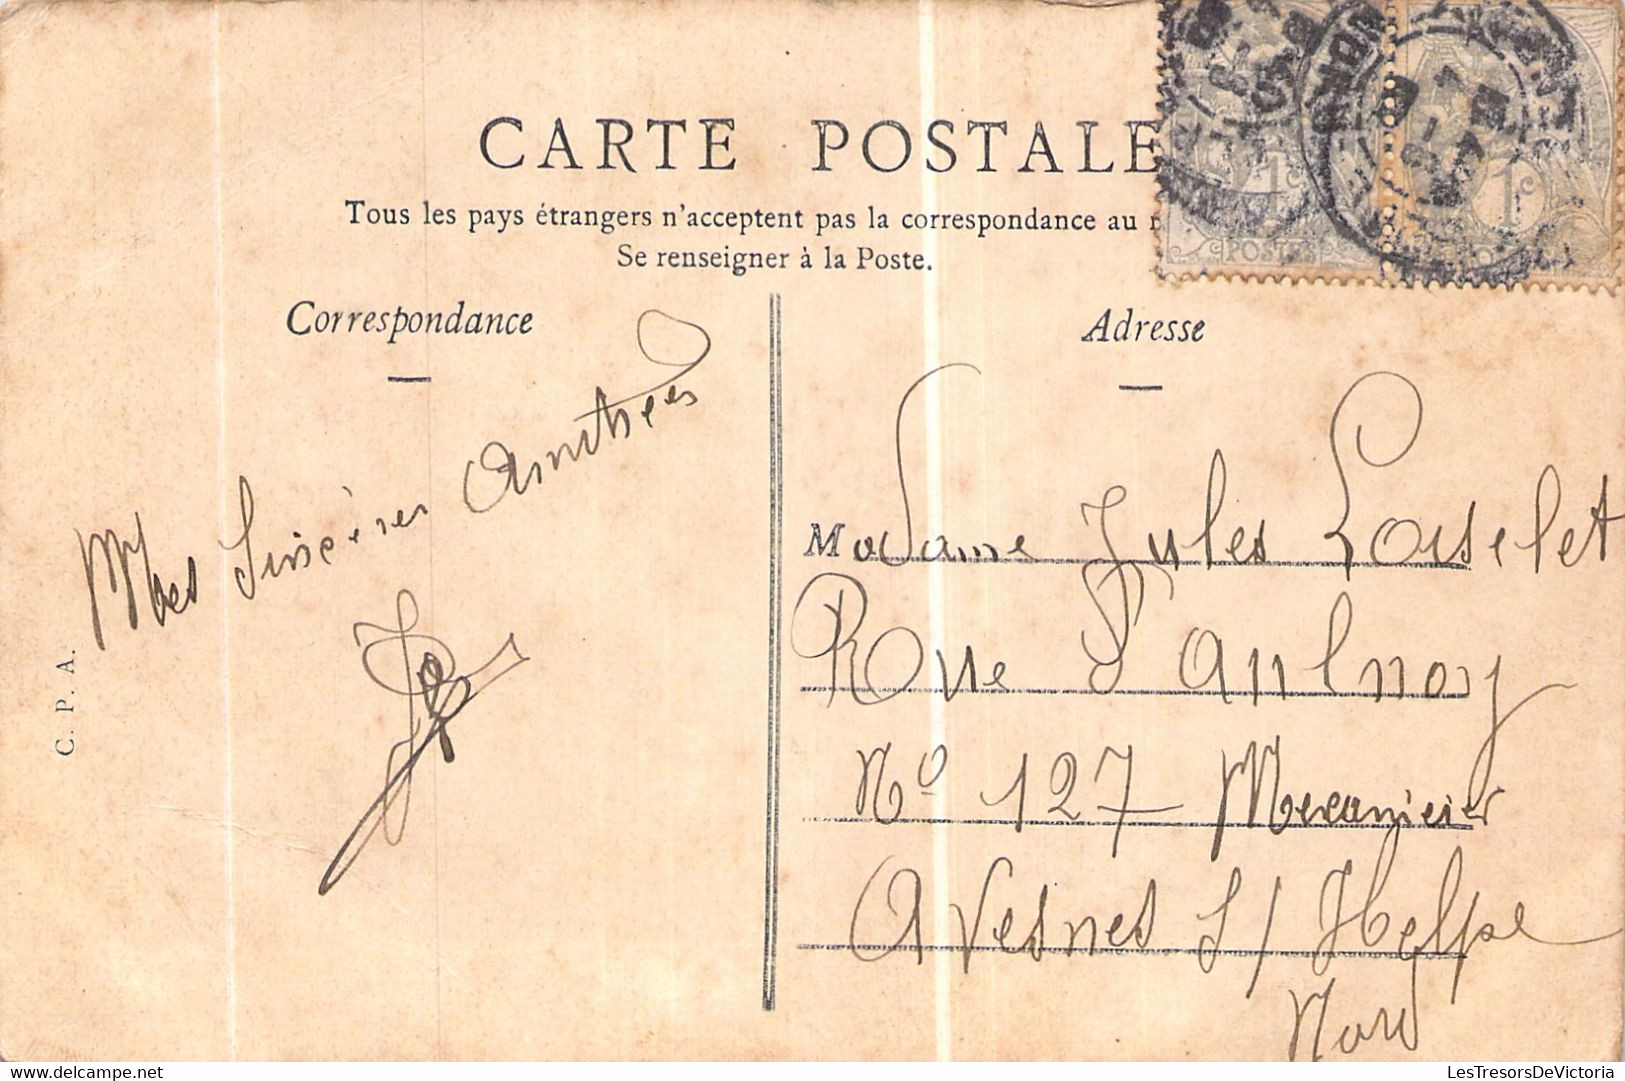 CARTE POSTALE
Tous les pays étrangers n'acceptent pas la correspondance au
Se renseigner à la Poste.
Correspondance
Adresse
Mes Sincères Amitiées
C. P. A.
Madame Jules Loiselet
Rue d'Aulnoy
No 127 Mecanicier
Avesnes S/ Helpe
Nord
1c
POSTES
1c
LesTresorsDeVictoria
www.delcampe.net